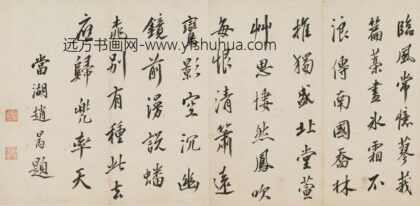 远方书画网-www.yishuhua.com
臨風常憶蓼莪
篇藻畫冰霜不
浪傳南國喬林
推獨盛北堂萱
艸思悽然鳳吹
每恨清簫遠
鸞影空沉幽
鏡前漫說蟠
桃別有種此去
應歸兜率天
當湖趙題